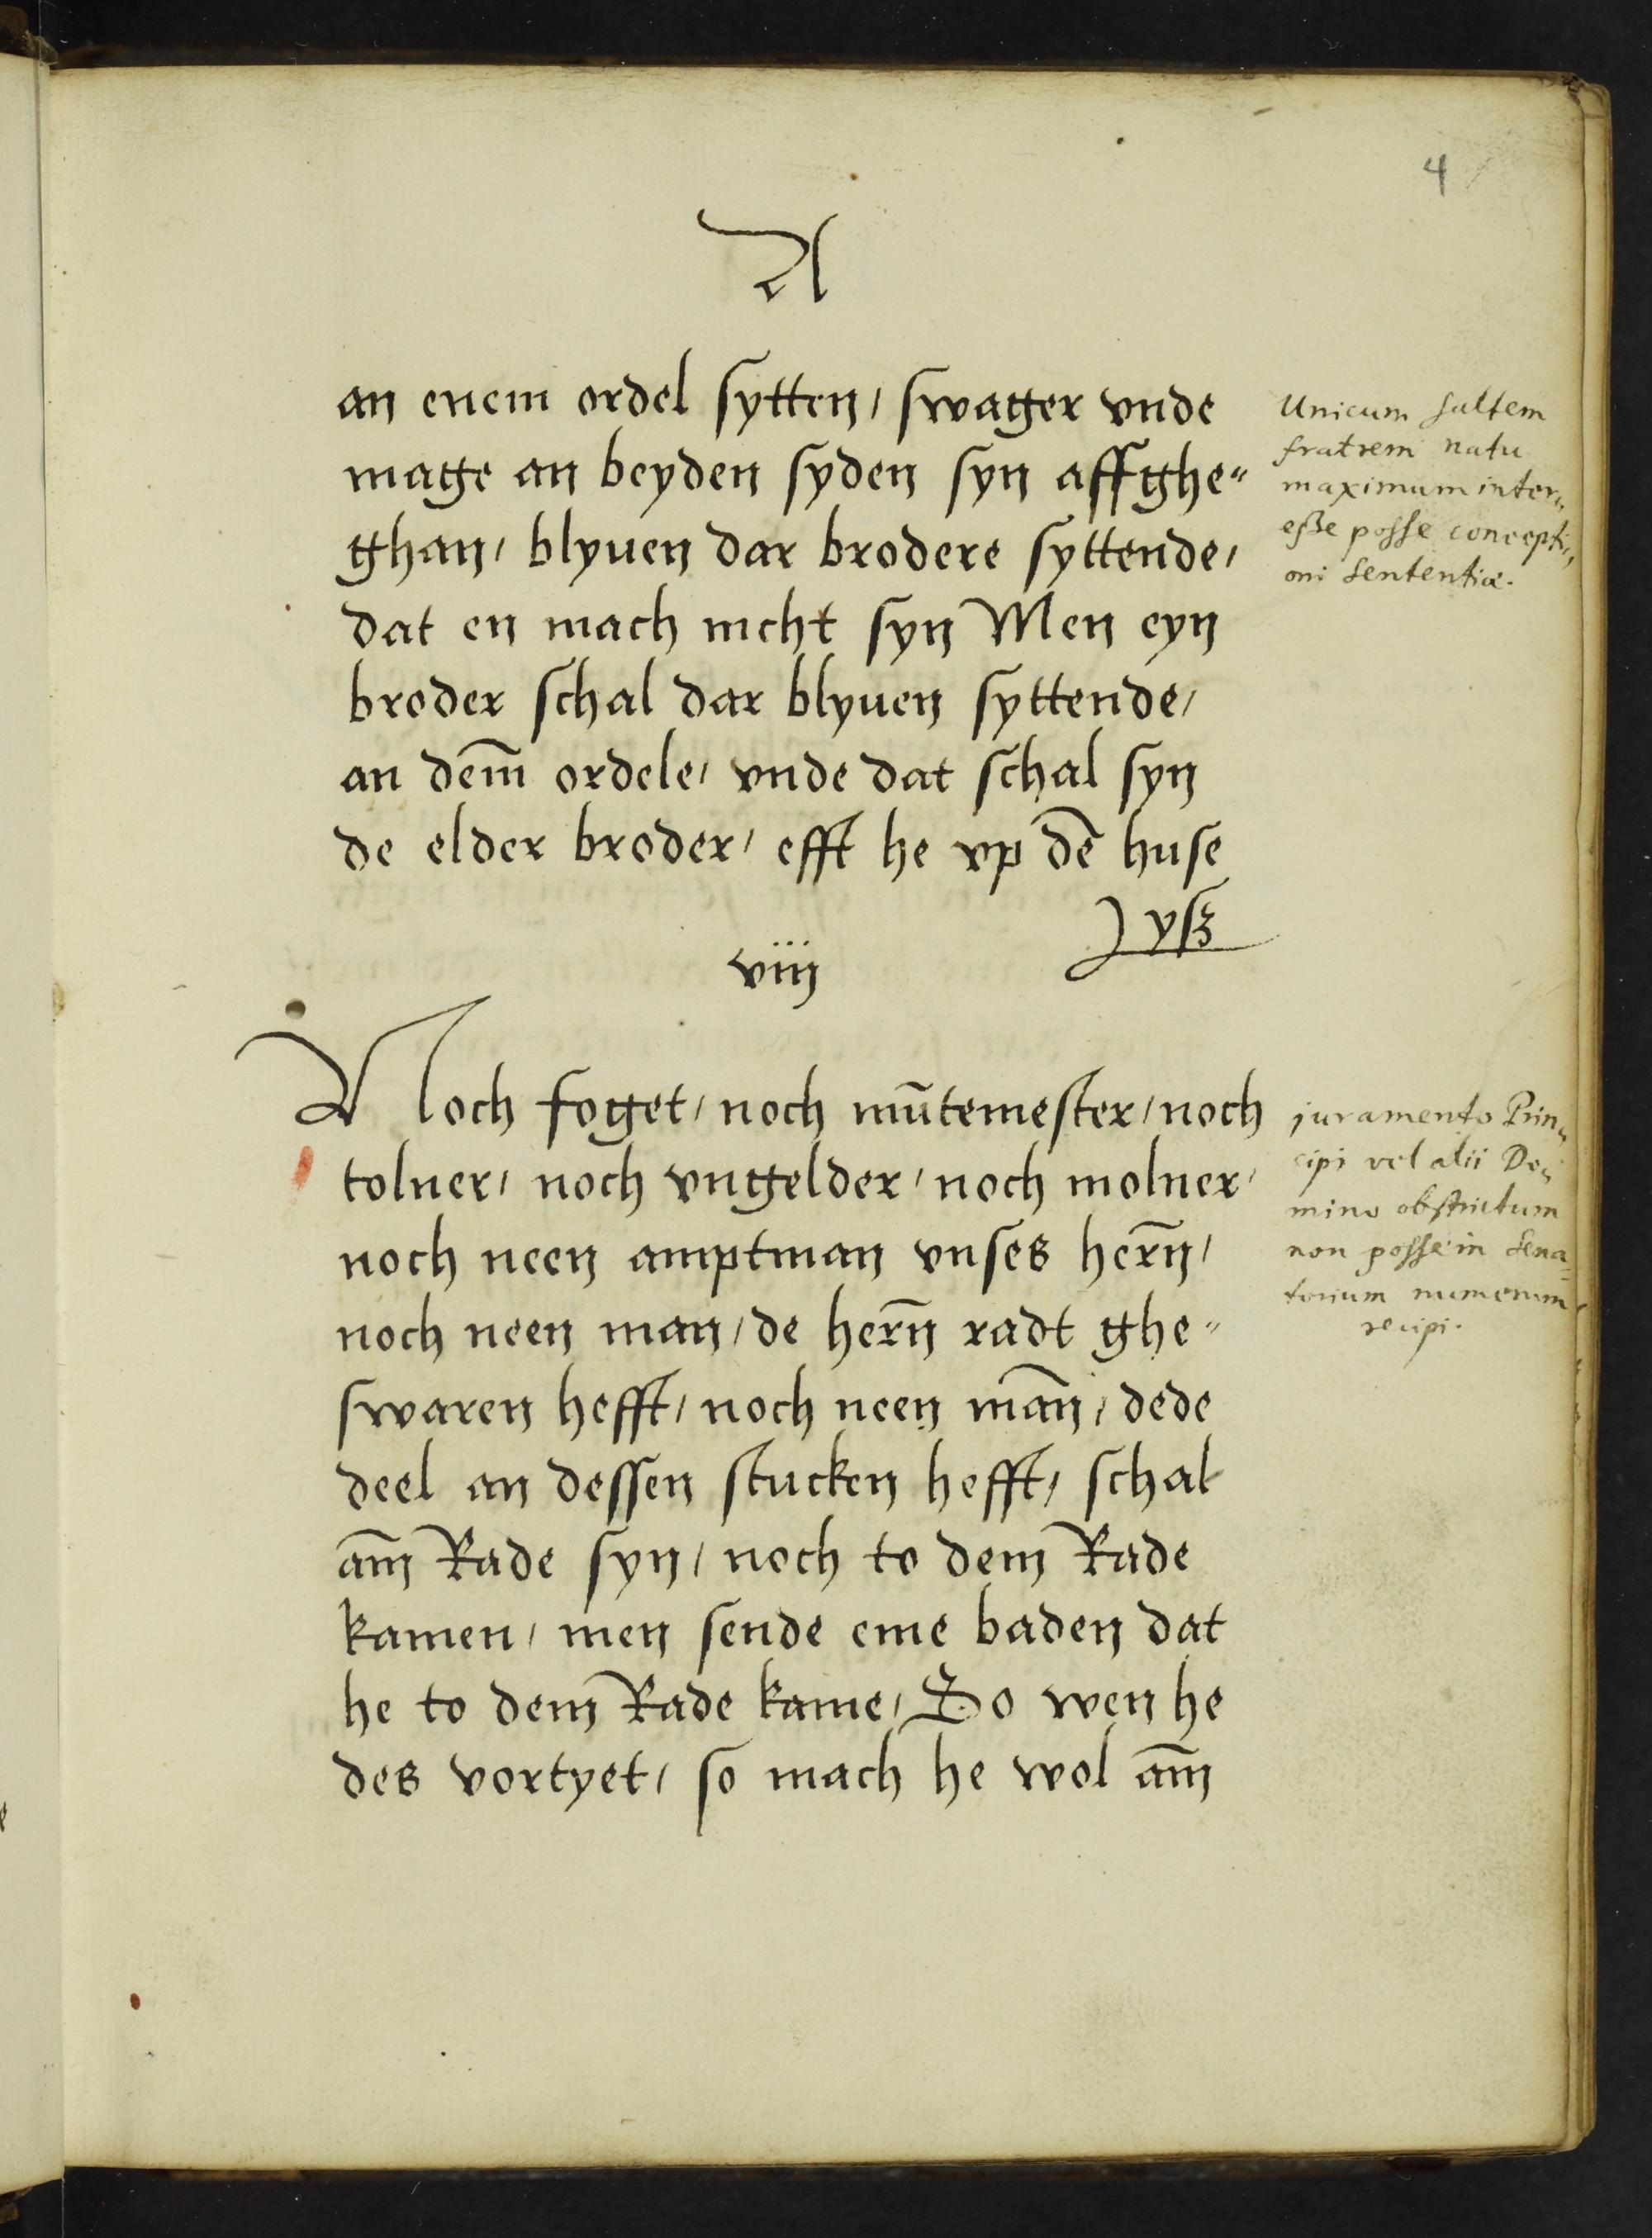 4
A
an enem ordel sytten, swager vnde
mage an beyden syden syn affghe⸗
ghan, blyuen dar brodere syttende,
dat en mach nicht syn Men eyn
broder schal dar blyuen syttende,
an dem̄ ordele, vnde dat schal syn
de elder broder, efft he vp dē huse
ysz
viij
Noch foget, noch mūtemester, noch
tolner, noch vngelder, noch molner,
noch neen amptman vnses herñ,
noch neen man, de herñ radt ghe⸗
swaren hefft, noch neen mañ, dede
deel an dessen stucken hefft, schal
am̄ Rade syn, noch to dem Rade
kamen, men sende eme baden dat
he to dem Rade kame, So wen he
des vortyet, so mach he wol am̄
Unicum saltem
fratrem natu
maximum inter⸗
eße posse concepti⸗
oni sententiæ.
juramento Prin⸗
cipi vel alii Do⸗
mino obstrictum
non posse in Sena⸗
torium numerum
recipi.